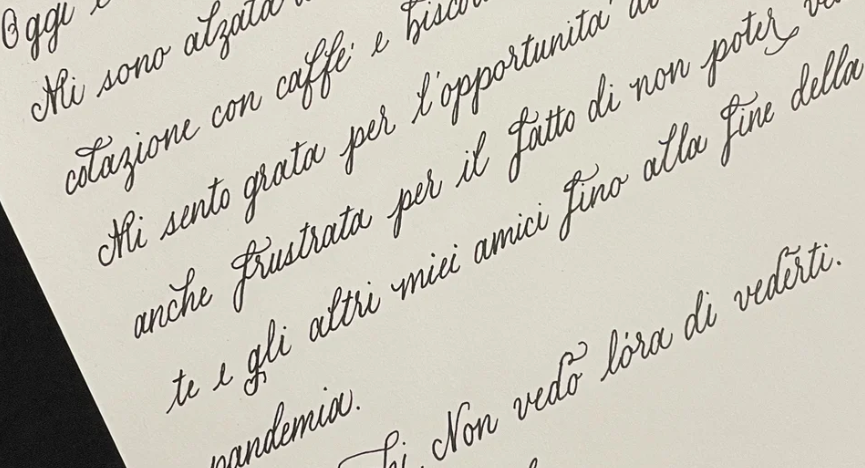 Oggi
Mi sono alzata
colazione con caffé e
Mi sento grata per l'opportunità
anche frustrata per il fatto di non poter
te e gli altri miei amici fino alla fine della
pandemia.
Non vedo l'óra di vederti.